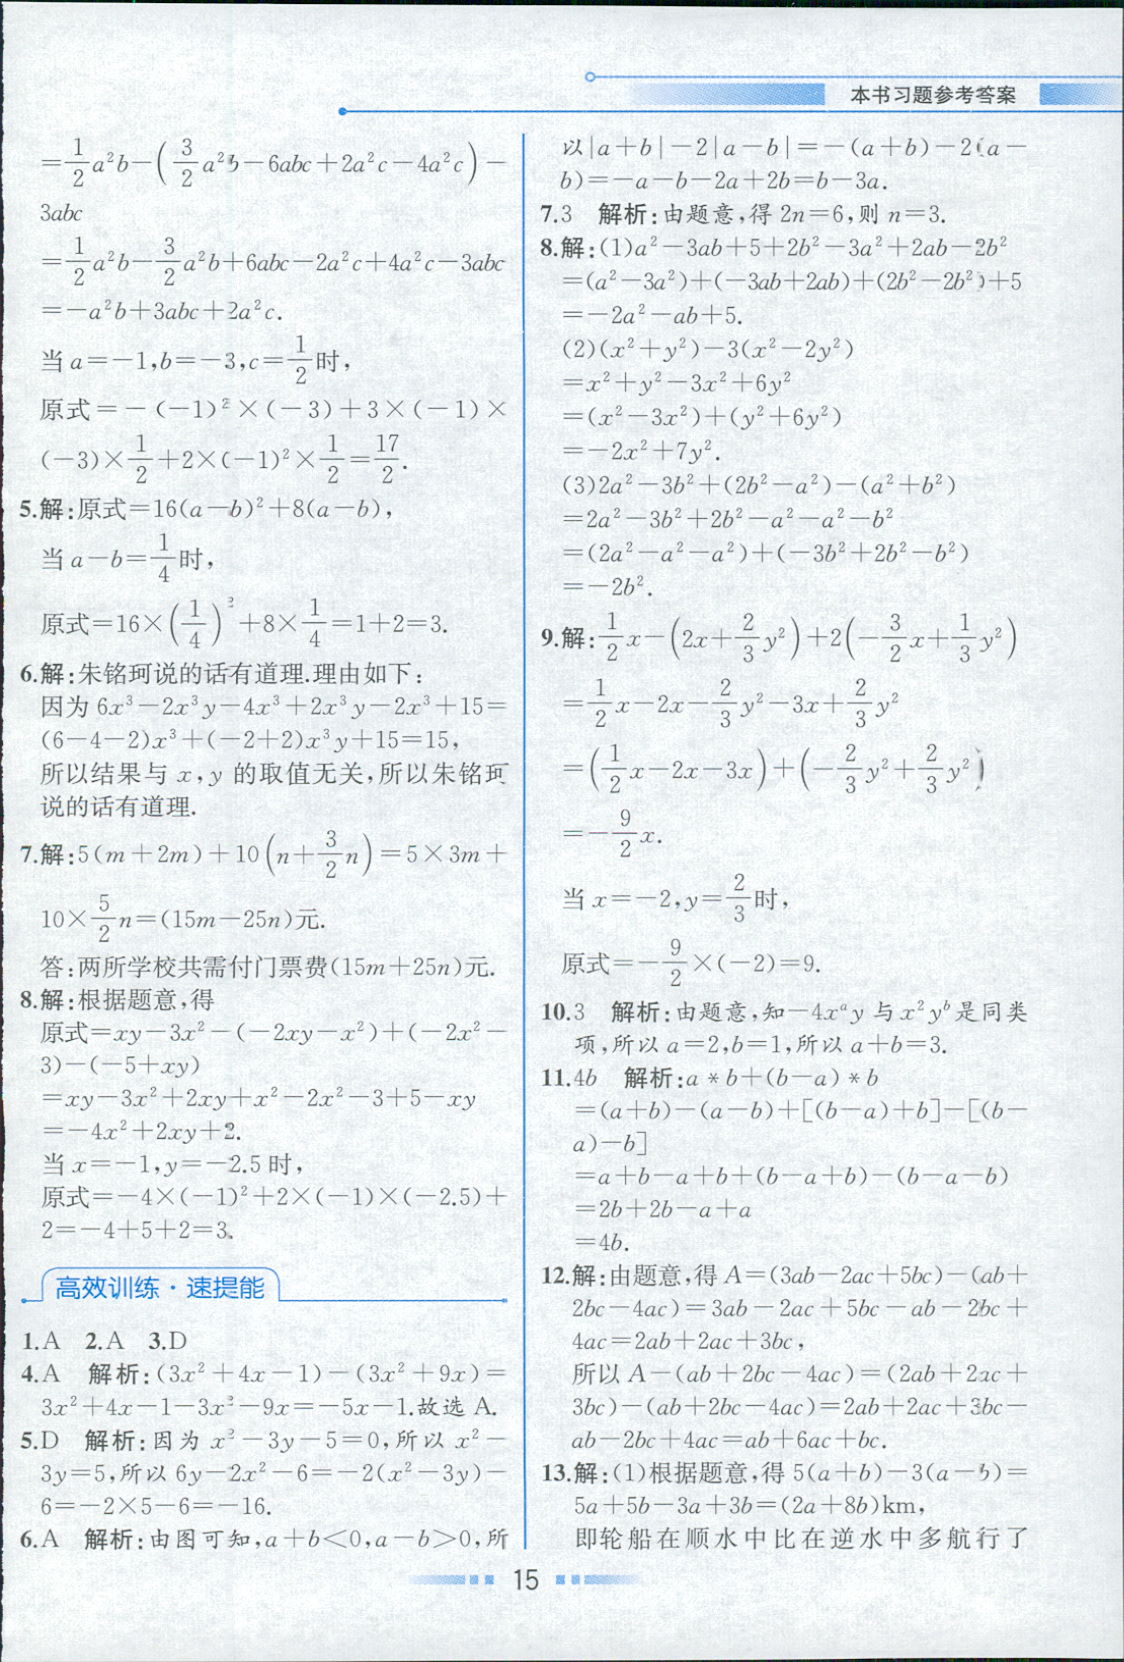 本书习题参考答案
=1/2a²b-(3/2a²b-6abc+2a²c-4a²c)-
3abc
=1/2a²b-3/2a²b+6abc-2a²c+4a²c-3abc
=-a²b+3abc+2a²c.
当a=-1,b=-3,c=1/2时,
原式=-(-1)²×(-3)+3×(-1)×
(-3)×1/2+2×(-1)²×1/2=17/2.
5.解:原式=16(a-b)²+8(a-b),
当a-b=1/4时,
原式=16×(1/4)²+8×1/4=1+2=3.
6.解:朱铭珂说的话有道理.理由如下:
因为6x³-2x³y-4x³+2x³y-2x³+15=
(6-4-2)x³+(-2+2)x³y+15=15,
所以结果与x,y的取值无关,所以朱铭珂
说的话有道理.
7.解:5(m+2m)+10(n+3/2n)=5×3m+
10×5/2n=(15m-25n)元.
答:两所学校共需付门票费(15m+25n)元.
8.解:根据题意,得
原式=xy-3x²-(-2xy-x²)+(-2x²-
3)-(-5+xy)
=xy-3x²+2xy+x²-2x²-3+5-xy
=-4x²+2xy+2.
当x=-1,y=-2.5时,
原式=-4×(-1)²+2×(-1)×(-2.5)+
2=-4+5+2=3.
高效训练·速提能
1.A 2.A 3.D
4.A 解析:(3x²+4x-1)-(3x²+9x)=
3x²+4x-1-3x²-9x=-5x-1.故选A.
5.D 解析:因为x²-3y-5=0,所以x²-
3y=5,所以6y-2x²-6=-2(x²-3y)-
6=-2×5-6=-16.
6.A 解析:由图可知,a+b<0,a-b>0,所
以|a+b|-2|a-b|=-(a+b)-2(a-
b)=-a-b-2a+2b=b-3a.
7.3 解析:由题意,得2n=6,则n=3.
8.解:(1)a²-3ab+5+2b²-3a²+2ab-2b²
=(a²-3a²)+(-3ab+2ab)+(2b²-2b²)+5
=-2a²-ab+5.
(2)(x²+y²)-3(x²-2y²)
=x²+y²-3x²+6y²
=(x²-3x²)+(y²+6y²)
=-2x²+7y².
(3)2a²-3b²+(2b²-a²)-(a²+b²)
=2a²-3b²+2b²-a²-a²-b²
=(2a²-a²-a²)+(-3b²+2b²-b²)
=-2b².
9.解:1/2x-(2x+2/3y²)+2(-3/2x+1/3y²)
=1/2x-2x-2/3y²-3x+2/3y²
=(1/2x-2x-3x)+(-2/3y²+2/3y²)
=-9/2x.
当x=-2,y=2/3时,
原式=-9/2×(-2)=9.
10.3 解析:由题意,知-4xᵃy与x²yᵇ是同类
项,所以a=2,b=1,所以a+b=3.
11.4b 解析:a*b+(b-a)*b
=(a+b)-(a-b)+[(b-a)+b]-[(b-
a)-b]
=a+b-a+b+(b-a+b)-(b-a-b)
=2b+2b-a+a
=4b.
12.解:由题意,得A=(3ab-2ac+5bc)-(ab+
2bc-4ac)=3ab-2ac+5bc-ab-2bc+
4ac=2ab+2ac+3bc,
所以A-(ab+2bc-4ac)=(2ab+2ac+
3bc)-(ab+2bc-4ac)=2ab+2ac+3bc-
ab-2bc+4ac=ab+6ac+bc.
13.解:(1)根据题意,得5(a+b)-3(a-b)=
5a+5b-3a+3b=(2a+8b)km,
即轮船在顺水中比在逆水中多航行了
15